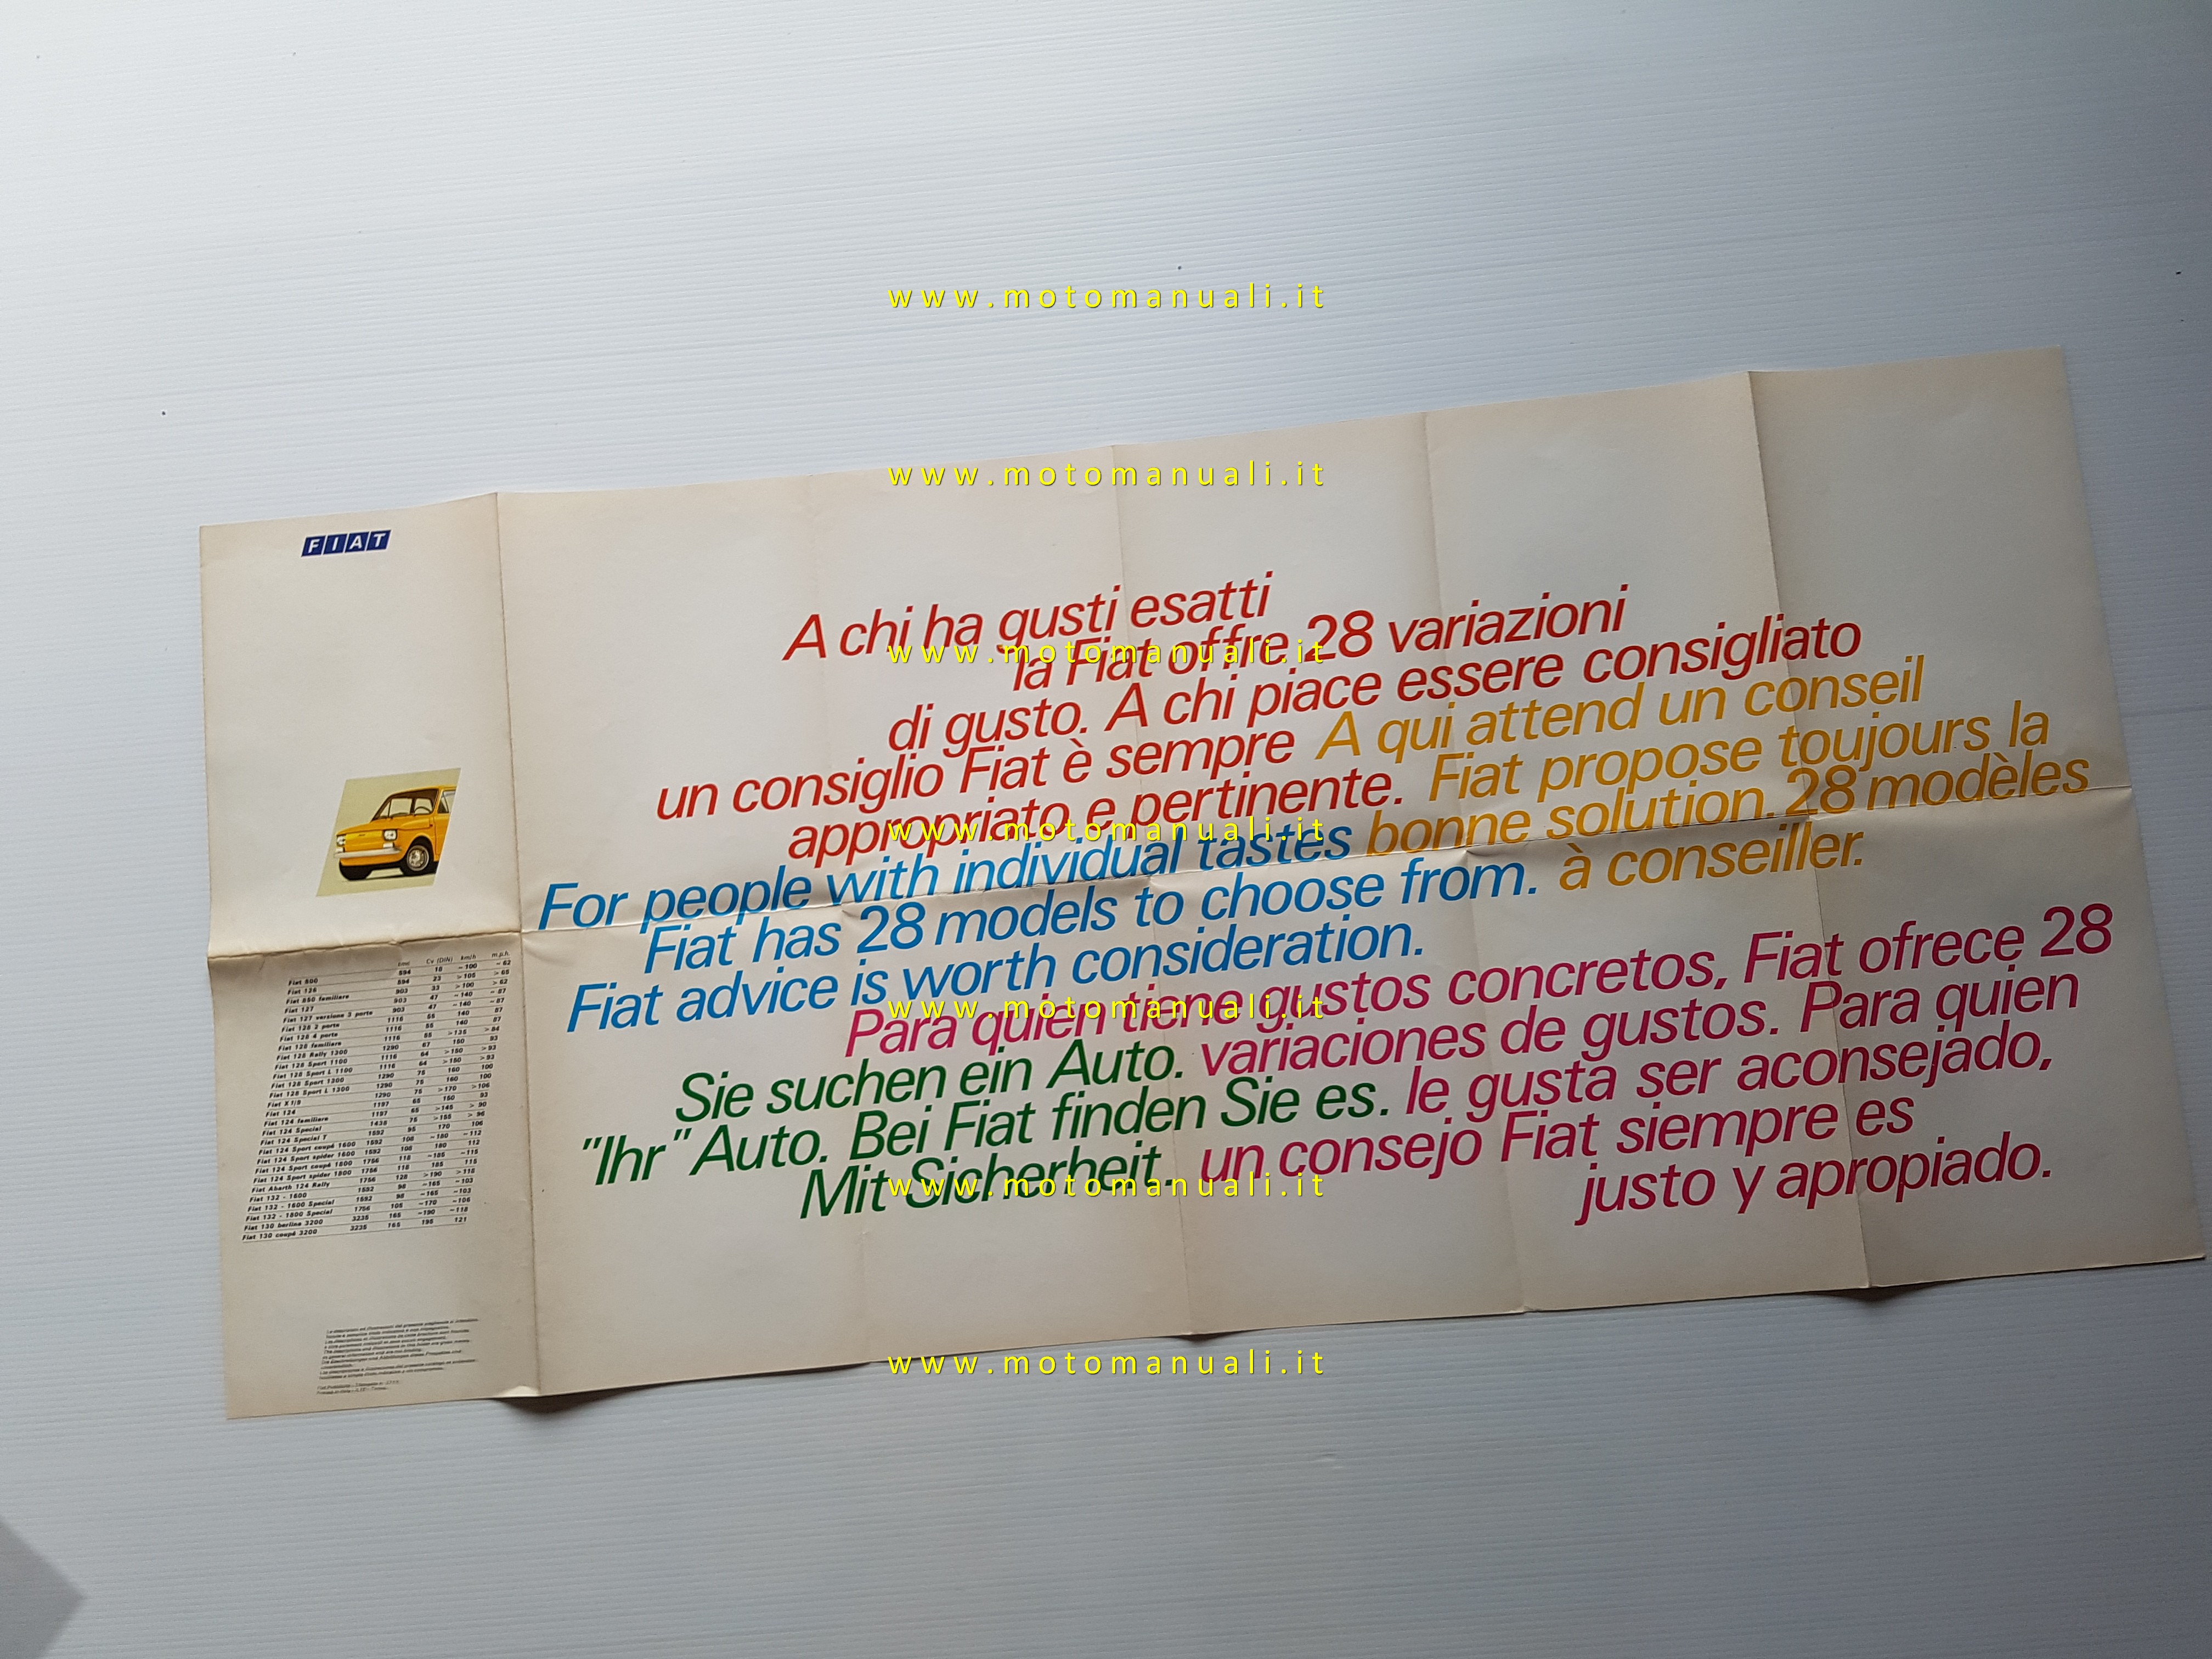 FIAT
cm³ Cv (DIN) km/h m.p.h.
Fiat 500 594 18 ~100 ~62
Fiat 126 594 23 >105 >65
Fiat 850 familiare 903 33 >100 >62
Fiat 127 903 47 ~140 ~87
Fiat 127 versione 3 porte 903 47 ~140 ~87
Fiat 128 2 porte 1116 55 140 87
Fiat 128 4 porte 1116 55 140 87
Fiat 128 familiare 1116 55 >135 >84
Fiat 128 Rally 1300 1290 67 150 93
Fiat 128 Sport 1100 1116 64 >150 >93
Fiat 128 Sport L 1100 1116 64 >150 >93
Fiat 128 Sport 1300 1290 75 160 100
Fiat 128 Sport L 1300 1290 75 160 100
Fiat X 1/9 1290 75 >170 >106
Fiat 124 1197 65 150 93
Fiat 124 familiare 1197 65 >145 >90
Fiat 124 Special 1438 75 >155 >96
Fiat 124 Special T 1592 95 170 106
Fiat 124 Sport coupé 1600 1592 108 ~180 ~112
Fiat 124 Sport spider 1600 1592 108 180 112
Fiat 124 Sport coupé 1800 1756 118 ~185 ~115
Fiat 124 Sport spider 1800 1756 118 185 115
Fiat Abarth 124 Rally 1756 128 >190 >118
Fiat 132 - 1600 1592 98 ~165 ~103
Fiat 132 - 1600 Special 1592 98 ~165 ~103
Fiat 132 - 1800 Special 1756 105 ~170 ~106
Fiat 130 berlina 3200 3235 165 ~190 ~118
Fiat 130 coupé 3200 3235 165 195 121
A chi ha gusti esatti
la Fiat offre 28 variazioni
di gusto. A chi piace essere consigliato
un consiglio Fiat è sempre
appropriato e pertinente.
A qui attend un conseil
Fiat propose toujours la
bonne solution. 28 modèles
à conseiller.
For people with individual tastes
Fiat has 28 models to choose from.
Fiat advice is worth consideration.
Para quien tiene gustos concretos, Fiat ofrece 28
variaciones de gustos. Para quien
le gusta ser aconsejado,
un consejo Fiat siempre es
justo y apropiado.
Sie suchen ein Auto.
"Ihr" Auto. Bei Fiat finden Sie es.
Mit Sicherheit.
www.motomanuali.it
www.motomanuali.it
www.motomanuali.it
www.motomanuali.it
www.motomanuali.it
www.motomanuali.it
www.motomanuali.it